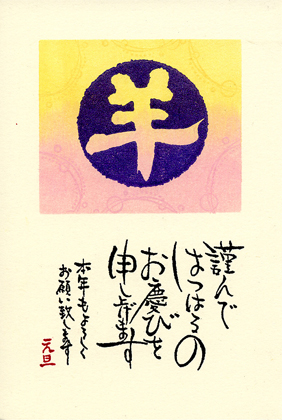 羊
謹んで
はつはるの
お慶びを
申し上げます
本年もよろしく
お願い致します
元旦